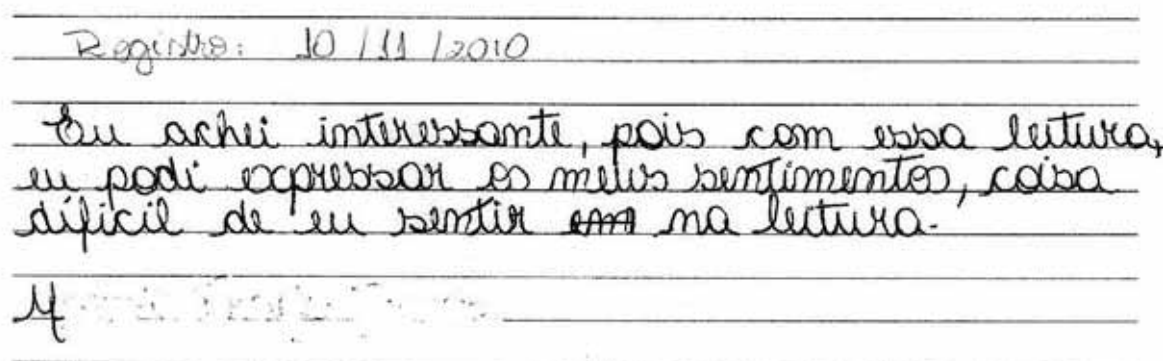 Registro: 10/11/2010
Eu achei interessante, pois com essa leitura,
eu podi expressar os meus sentimentos, coisa
dificil de eu sentir em na leitura.
M